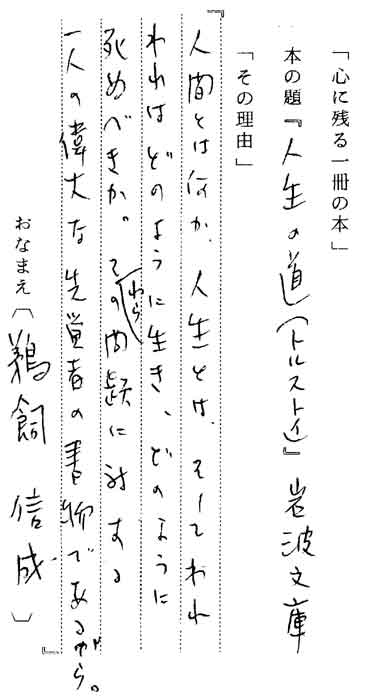 「心に残る一冊の本」
本の題『人生の道(トルストイ)』岩波文庫
「その理由」
『人間とは何か、人生とは、そしてわれ
われはどのように生き、どのように
死ぬべきか。それらの問題に対する
一人の偉大な先覚者の書物であるから。』
おなまえ〔鵜飼 信成〕